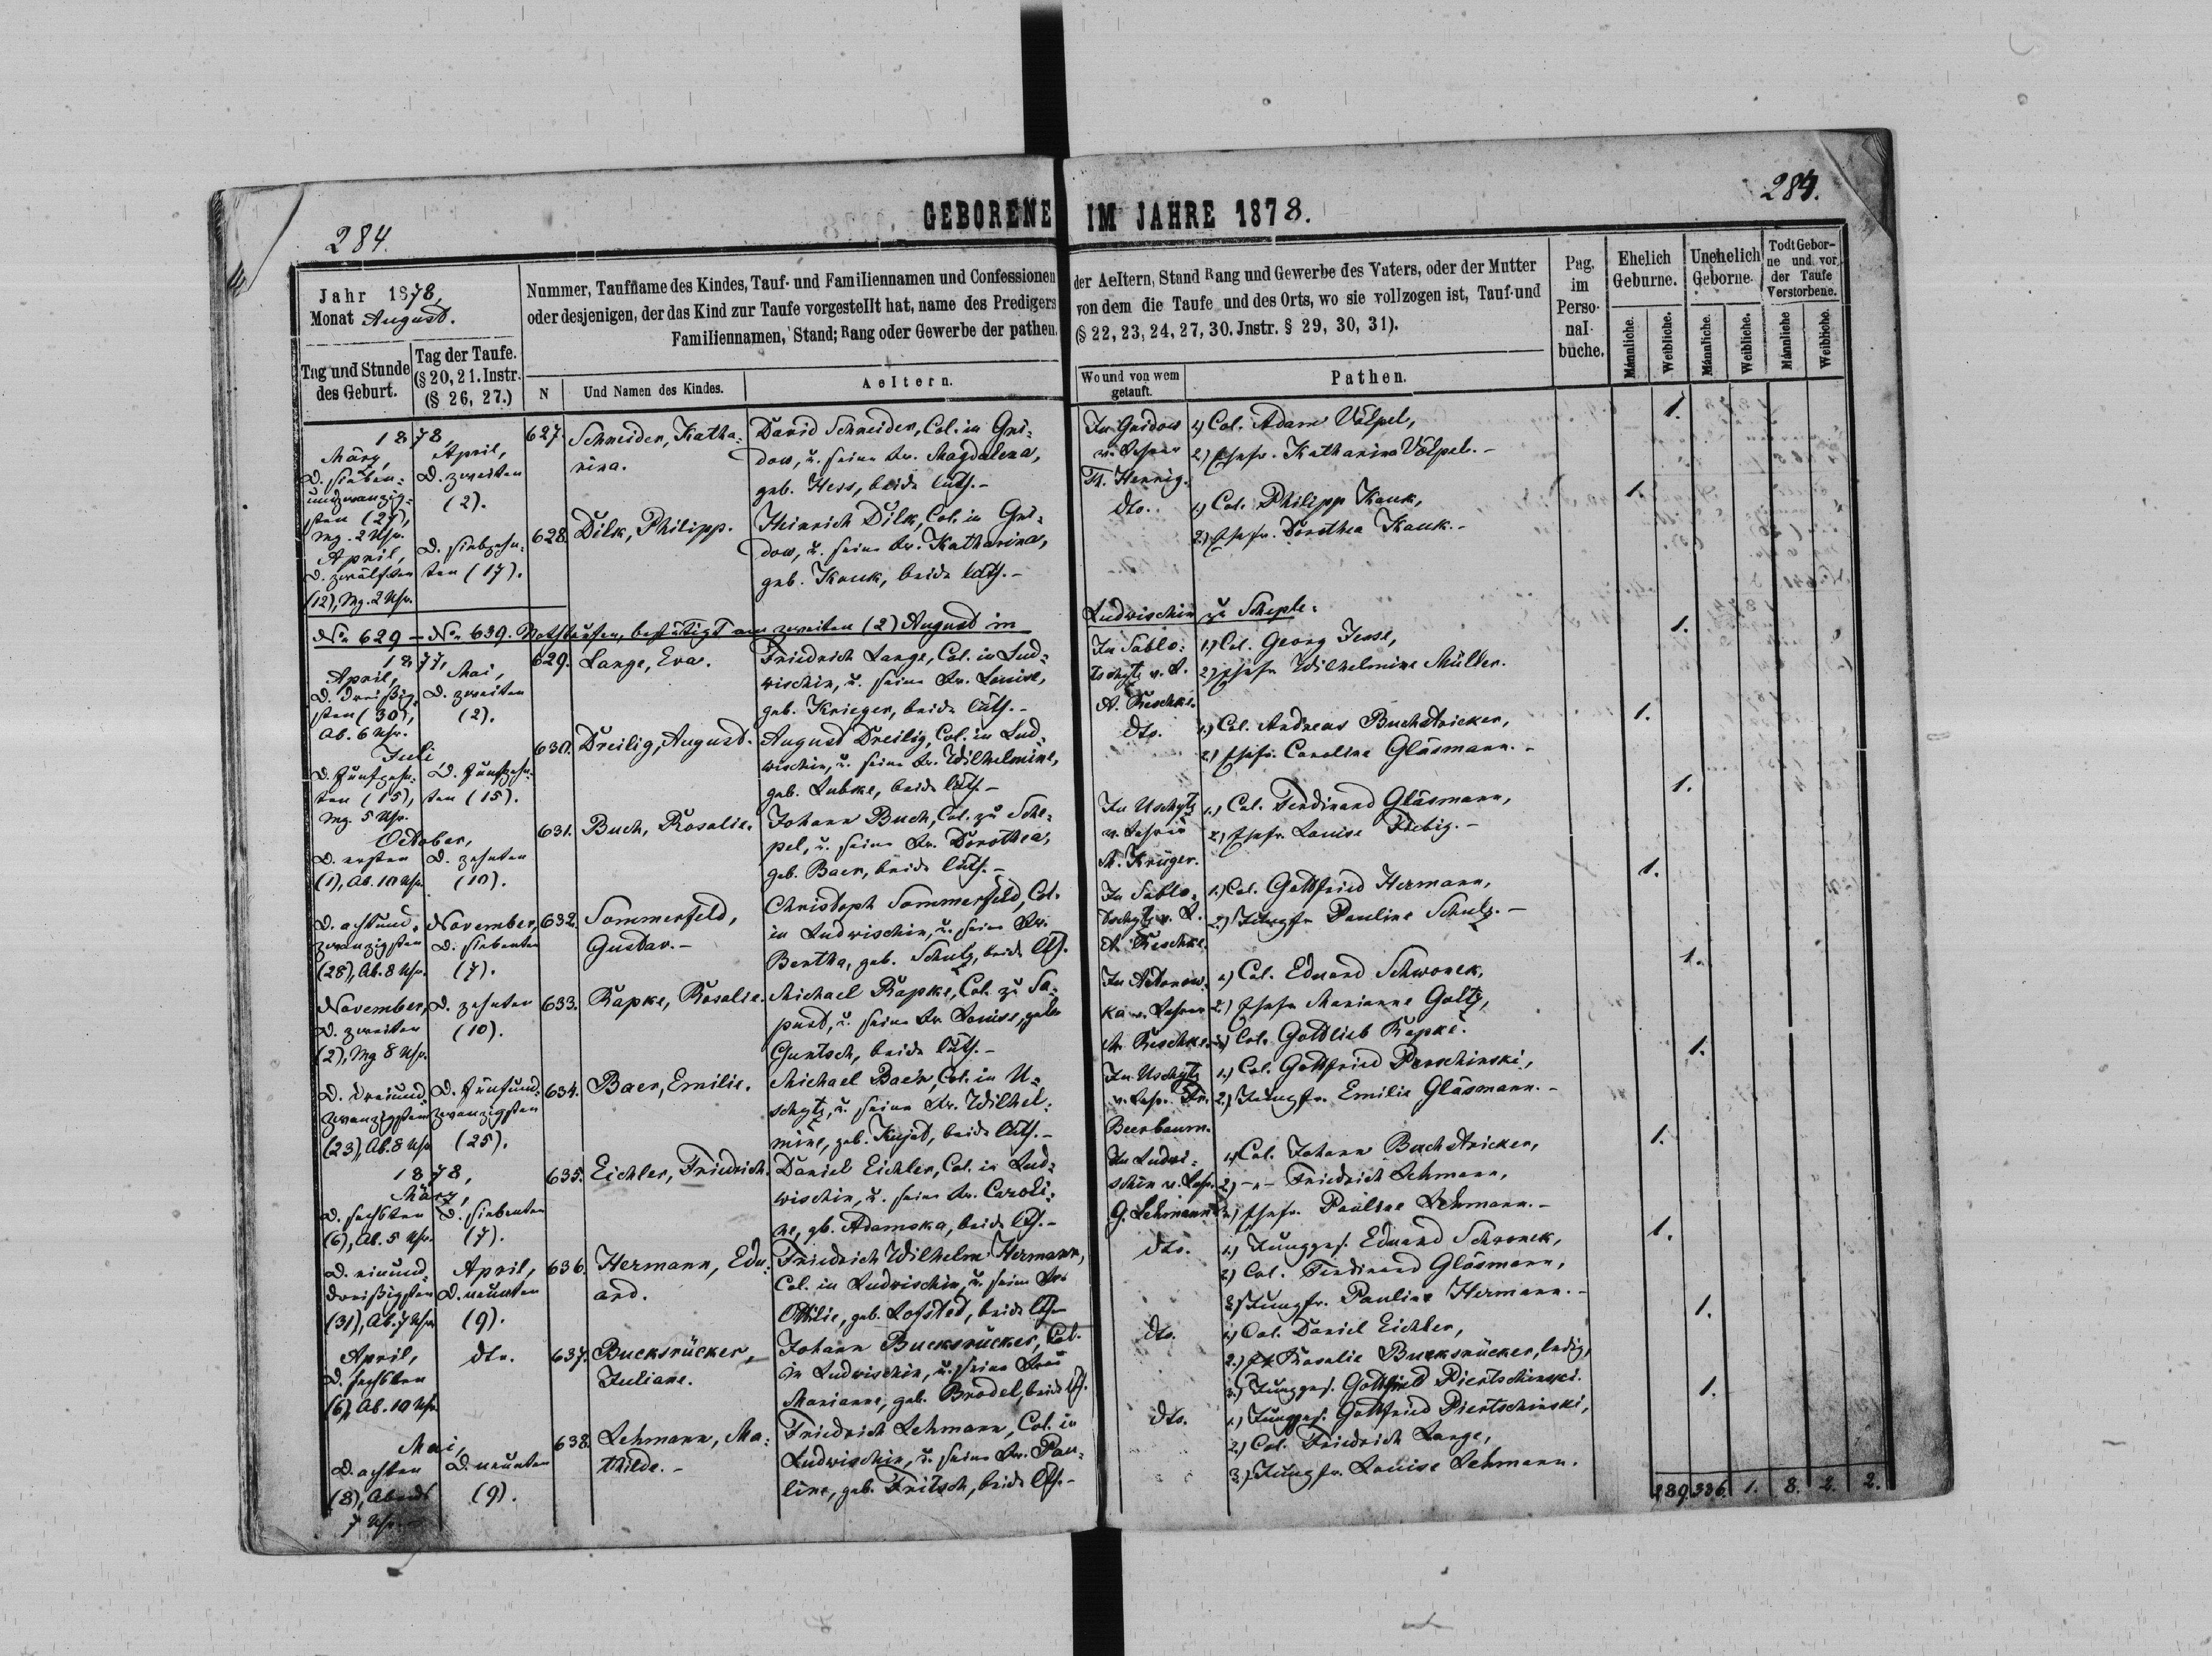 284.
GEBORENE IM JAHRE 1878.
284.
Jahr 1878,
Monat August.
Tag und Stunde
des Geburt.
Tag der Taufe.
(§ 20, 21. Instr.
(§ 26, 27.)
Nummer, Taufname des Kindes, Tauf- und Familiennamen und Confessionen
oder desjenigen, der das Kind zur Taufe vorgestellt hat, name des Predigers
Familiennamen, Stand; Rang oder Gewerbe der pathen.
N
Und Namen des Kindes.
Aeltern.
der Aeltern, Stand Rang und Gewerbe des Vaters, oder der Mutter
von dem die Taufe und des Orts, wo sie vollzogen ist, Tauf-und
(§ 22, 23, 24, 27, 30. Jnstr. § 29, 30, 31).
Wo und von wem
getauft.
Pathen.
Pag.
im
Perso-
nal-
buche.
Ehelich
Geburne.
Unehelich
Geborne.
Todt Gebor-
ne und vor
der Taufe
Verstorbene.
Männliche.
Weibliche.
Männliche.
Weibliche.
Männliche
Weibliche.
1878,
März,
D. sieben-
undzwanzig-
sten (27),
Mg. 2 Uhr.
April,
D. zweiten
(2).
627.
Schneider, Katha-
rina.
David Schneider, Col. in Gni-
dow, u. seine Fr. Magdalena,
geb. Hess, beide luth.-
In Gnidow
v. Lehrer
Th. Hennig.
1) Col. Adam Völpel,
2) Ehefr. Katharina Völpel.-
1.
April,
D. zwölften
(12), Mg. 2 Uhr.
D. siebzehn-
ten (17).
628.
Dilk, Philipp.
Heinrich Dilk, Col. in Gni-
dow, u. seine Fr. Katharina,
geb. Kauk, beide luth.-
dto.
1) Col. Philipp Kauk,
2) Ehefr. Dorothea Kauk.-
1.
No 629 - No 639. Nothtaufen, bestätigt am zweiten (2) August in
Ludwischin zu Scheple:
1877,
April,
D. dreißig-
sten (30),
Ab. 6 Uhr.
Mai,
D. zweiten
(2).
629.
Lange, Eva.
Friedrich Lange, Col. in Lud-
wischin, u. seine Fr. Louise,
geb. Krieger, beide luth.-
In Sablo-
tschytz v. L.
A. Reschke.
1) Col. Georg Jense,
2) Ehefr. Wilhelmine Müller.
1.
Juli,
D. Fünfzehn-
ten (15),
Mg. 5 Uhr.
D. Fünfzehn-
ten (15).
630.
Dreilig, August.
August Dreilig, Col. in Lud-
wischin, u. seine Fr. Wilhelmine,
geb. Lubske, beide luth.-
dto.
1) Col. Andreas Buchstricker,
2) Ehefr. Caroline Gläsmann.-
1.
October,
D. ersten
(1), Ab. 10 Uhr.
D. zehnten
(10).
631.
Buch, Rosalie.
Johann Buch, Col. zu Sche-
pel, u. seine Fr. Dorothea,
geb. Baer, beide luth.-
In Uschytz
v. Lehrer
M. Krüger.
1) Col. Ferdinand Gläsmann,
2) Ehefr. Louise Fiebig.-
1.
D. achtund-
zwanzigsten
(28), Ab. 8 Uhr.
November,
D. siebenten
(7).
632.
Sommerfeld,
Gustav.-
Christoph Sommerfeld, Col.
in Ludwischin, u. seine Fr.
Bertha, geb. Schulz, beide lth.
In Sablo-
tschytz v. L.
A. Reschke.
1) Col. Gottfried Hermann,
2) Jungfr. Pauline Schulz.-
1.
November,
D. zweiten
(2), Mg 8 Uhr.
D. zehnten
(10).
633.
Rapke, Rosalie.
Michael Rapke, Col. zu Sa-
pust, u. seine Fr. Louise, geb.
Guntsch, beide luth.-
In Antonow-
ka v. Lehrer
A. Reschke.
1) Col. Eduard Schwonek,
2) Ehefr. Marianne Goltz,
3) Col. Gottlieb Rapke.
1.
D. dreiund-
zwanzigsten
(23), Ab. 8 Uhr
D. Fünfund-
zwanzigsten
(25).
634.
Baer, Emilie.
Michael Baer, Col. in U-
schytz, u. seine Fr. Wilhel-
mine, geb. Kujat, beide luth.-
In Uschytz
v. Leh. Fr.
Beerbaum.
1) Col. Gottfried Perschinski,
2) Jungfr. Emilie Gläsmann.-
1.
1878,
März,
D. sechsten
(6), Ab. 5 Uhr.
D. siebenten
(7).
635.
Eichler, Friedrich.
Daniel Eichler, Col. in Lud-
wischin, u. seine Fr. Caroli-
ne, gb. Adamska, beide lth.-
In Ludwi-
schin v. Leh.
G. Lehmann
1) Col. Johann Buchstricker,
2) -"- Friedrich Lehmann,
3) Ehefr. Pauline Lehmann.-
1.
D. einund-
dreißigsten
(31), Ab. 7 Uhr
April,
D. neunten
(9).
636.
Hermann, Edu-
ard.
Friedrich Wilhelm Hermann,
Col. in Ludwischin, u. seine Fr.
Ottilie, geb. Lofsted, beide lth.-
dto.
1) Jungges. Eduard Schwonek,
2) Col. Ferdinand Gläsmann,
3) Jungfr. Pauline Hermann.-
1.
April,
D. sechsten
(6), Ab. 10 Uhr.
dto.
637.
Bucksrücker,
Juliane.
Johann Bucksrücker, Col.
in Ludwischin, u. seine Frau
Marianne, geb. Brodel, beide lth.
dto.
1) Col. Daniel Eichler,
2) Rosalie Bucksrücker, ledig,
3) Jungges. Gottfried Piertschinski.
1.
Mai,
D. achten
(8), Abends
7 Uhr.-
D. neunten
(9).
638.
Lehmann, Ma-
thilde.-
Friedrich Lehmann, Col. in
Ludwischin, u. seine Fr. Pau-
line, geb. Fritsch, beide lth.-
dto.
1) Jungges. Gottfried Piertschinski,
2) Col. Friedrich Lange,
3) Jungfr. Louise Lehmann.
1.
289. 336. 1. 8. 2. 2.